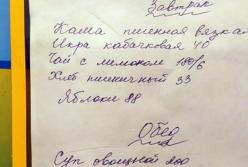 Завтрак
Каша пшенная вязкая
Икра кабачковая 40
Чай с лимоном 180/6
Хлеб пшеничный 33
Яблоки 88
Обед
Суп овощной 200